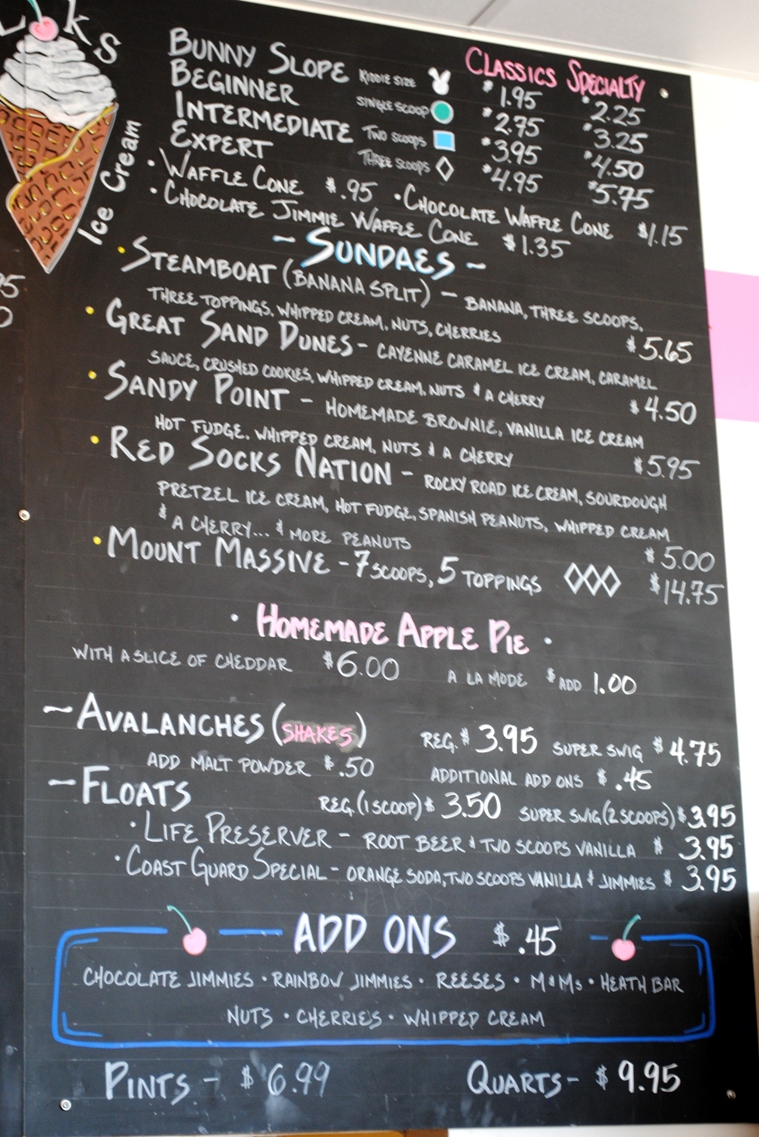 Ks
Ice Cream
Classics Specialty
Bunny Slope Kiddie Size $1.95 $2.25
Beginner Single Scoop $2.75 $3.25
Intermediate Two Scoops $3.95 $4.50
Expert Three Scoops $4.95 $5.75
• Waffle Cone $.95 • Chocolate Waffle Cone $1.15
• Chocolate Jimmie Waffle Cone $1.35
~ Sundaes ~
• Steamboat (Banana Split) – Banana, Three Scoops,
Three Toppings, Whipped Cream, Nuts, Cherries $5.65
• Great Sand Dunes – Cayenne Caramel Ice Cream, Caramel
Sauce, Crushed Cookies, Whipped Cream, Nuts & A Cherry $4.50
• Sandy Point – Homemade Brownie, Vanilla Ice Cream
Hot Fudge, Whipped Cream, Nuts & A Cherry $5.95
• Red Socks Nation – Rocky Road Ice Cream, Sourdough
Pretzel Ice Cream, Hot Fudge, Spanish Peanuts, Whipped Cream
& A Cherry... & More Peanuts $5.00
• Mount Massive – 7 Scoops, 5 Toppings $14.75
• Homemade Apple Pie •
With A Slice Of Cheddar $6.00 A La Mode $ Add 1.00
~ Avalanches (Shakes) Reg. $3.95 Super Swig $4.75
Add Malt Powder $.50 Additional Add Ons $.45
~ Floats Reg. (1 Scoop) $3.50 Super Swig (2 Scoops) $3.95
• Life Preserver – Root Beer & Two Scoops Vanilla $3.95
• Coast Guard Special – Orange Soda, Two Scoops Vanilla & Jimmies $3.95
ADD ONS $.45
Chocolate Jimmies • Rainbow Jimmies • Reeses • M&Ms • Heath Bar
Nuts • Cherries • Whipped Cream
Pints – $6.99 Quarts – $9.95